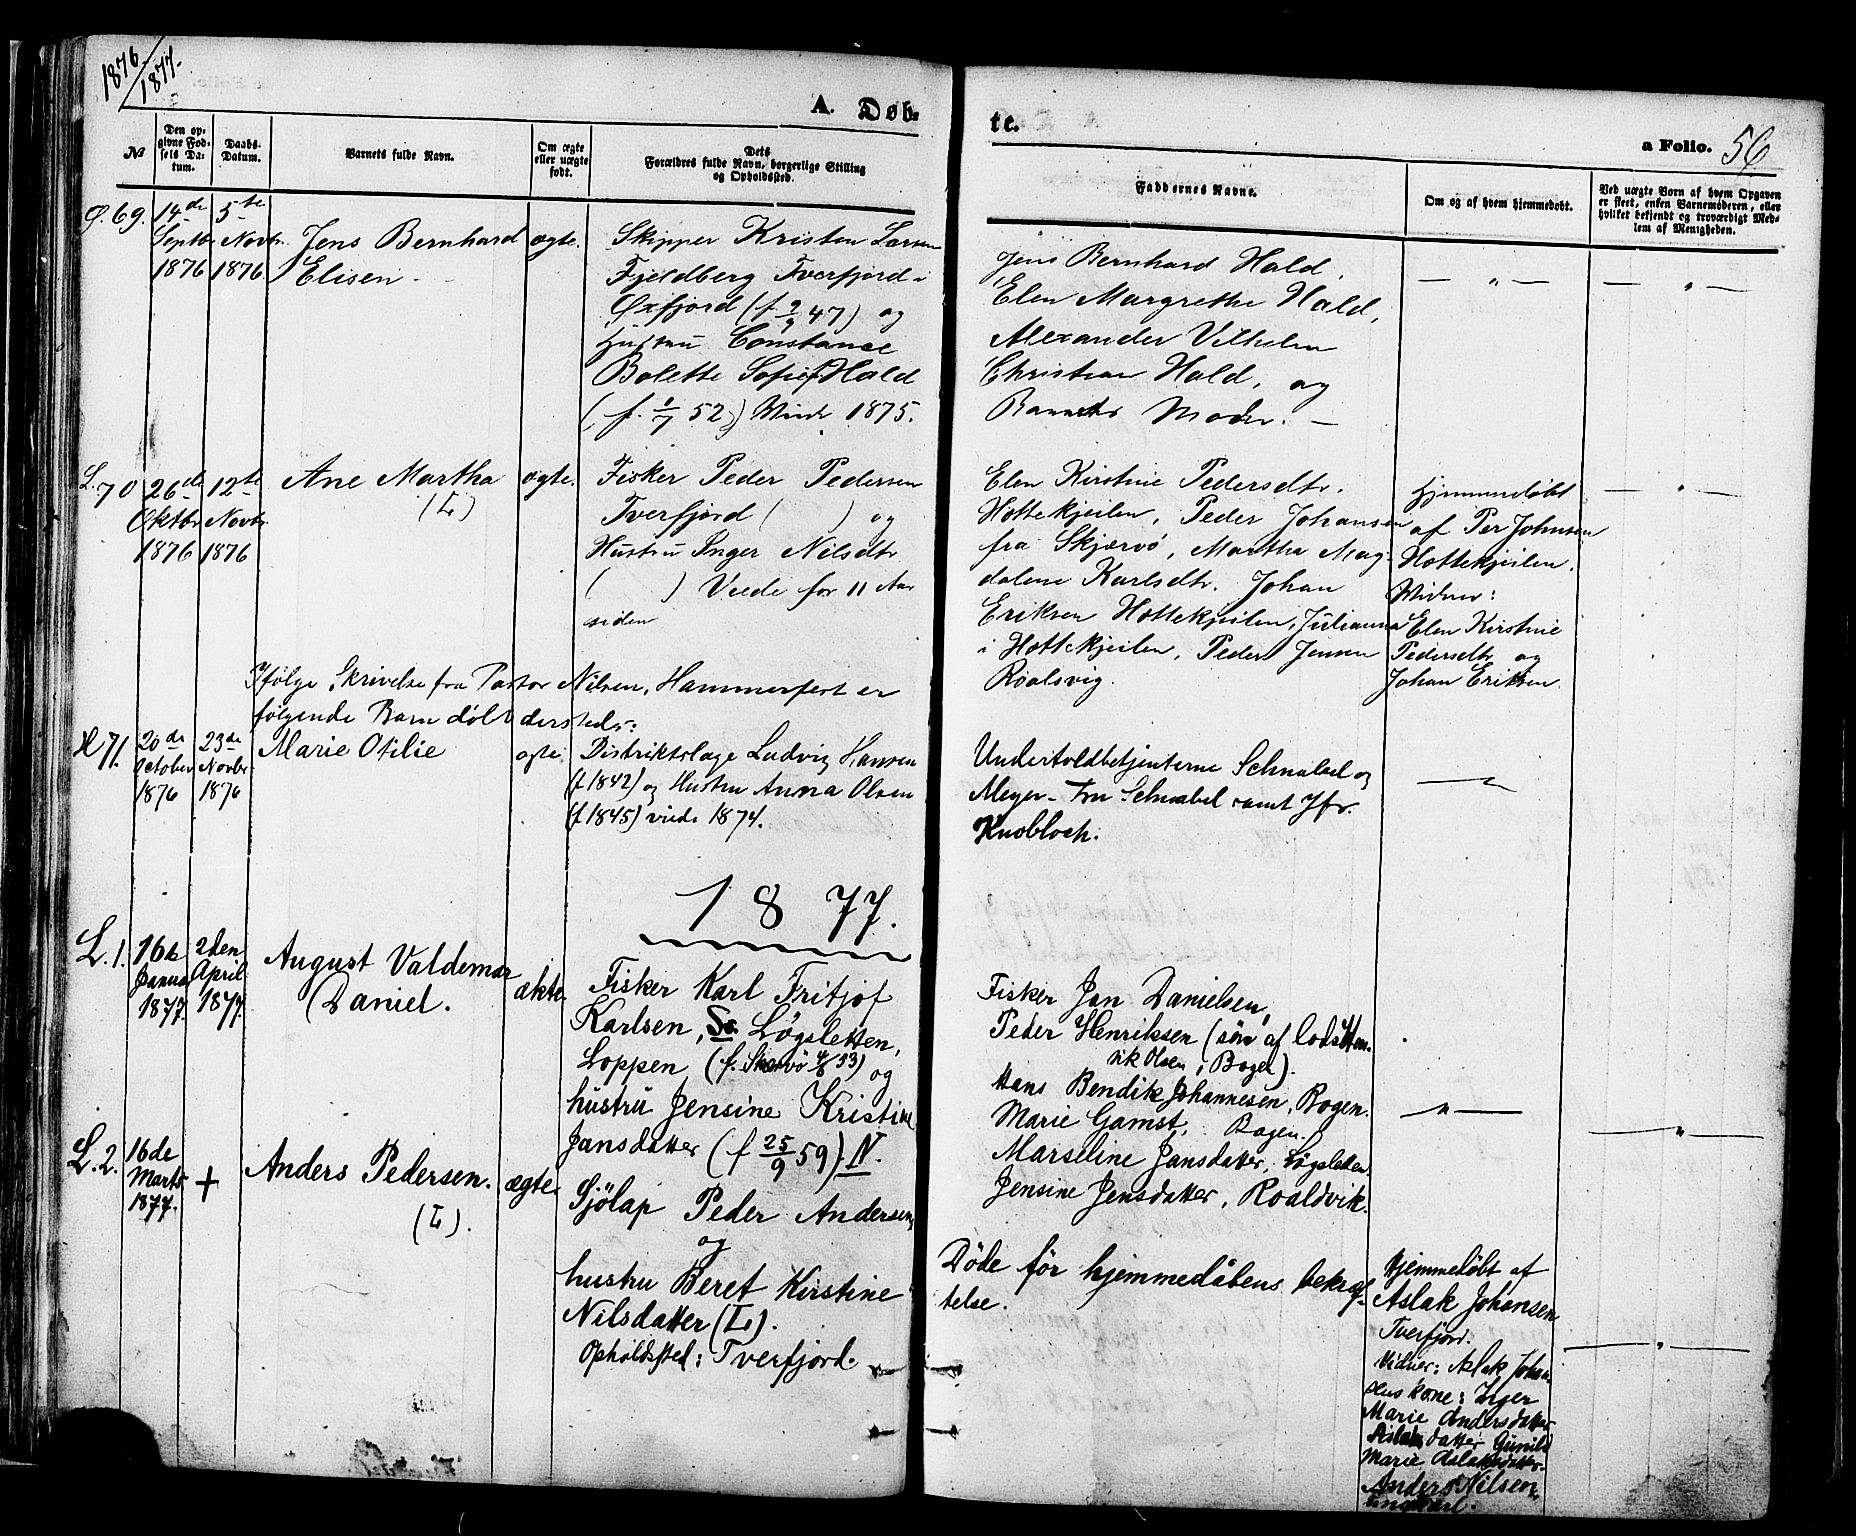 1876/1877.
A. Døb-
te.
a Folio. 56
№
Den op-
givne Fød-
sels Da-
tum.
Daabs-
Datum.
Barnets fulde Navn.
Om ægte
eller uægte
født.
Dets
Forældres fulde Navn, borgerlige Stilling
og Opholdssted.
Faddernes Navne.
Om og af hvem hjemmedøbt.
Ved uægte Børn af hvem Opgaven
er skeet, enken Barnemoderen, eller
hvilket bekjendt og troværdigt Med-
lem af Menigheden.
Ø. 69.
14de
Septbr.
1876
5te
Novbr.
1876
Jens Bernhard
Elisen
ægte.
Skipper Kristen Larsen
Fjeldberg Tverfjord i
Øxfjord (f 2/9 47) og
Hustru Constance
Bolette Sofie Hald
(f. 1/7 52) Viede 1875.
Jens Bernhard Hald,
Elen Margrethe Hald,
Alexander Vilhelm
Christian Hald, og
Barnets Moder. —
— " —
— " —
L. 70
26de
Oktbr.
1876
12te
Novbr.
1876
Ane Martha
(L)
ægte.
Fisker Peder Pedersen
Tverfjord ( ) og
Hustru Inger Nilsdtr
( ) Viede for 11 Aar
siden
Elen Kirstine Pedersdtr.
Hottekjeilen, Peder Johansen
fra Skjærvø, Martha Mag-
dalene Karlsdtr. Johan
Eriksen Hottekjeilen, Julianna
i Hottekjeilen, Peder Jensen
Roalsvig.
Hjemmedøbt
af Per Johnsen
Hottekjeilen.
Vidner:
Elen Kirstine
Pedersdtr og
Johan Eriksen.
— " —
Ifølge Skrivelse fra Pastor Nilsen, Hammerfest er
følgende Barn døbt dersteds:
H 71.
20de
October
1876
23de
Novbr.
1876
Marie Otilie
ægte
Distriktslæge Ludvig Hansen
(f 1842) og Hustru Anna Olsen
(f 1845) viede 1874.
Undertoldbetjenterne Schnabel og
Meyer - Fru Schnabel samt Jfr.
Knobloch.
—"—
1877.
L. 1.
16de
Januar
1877.
2den
April
1877.
August Valdemar
Daniel.
ækte.
Fisker Karl Fritjof
Karlsen, Løgsletten,
Loppen (f. Skærvö 4/6 53) og
hustru Jensine Kristine
Jansdatter (f 25/9 59) N.
Fisker Jan Danielsen,
Peder Henriksen (sön af lods Hen-
rik Olsen, Bogen).
Hans Bendik Johannesen, Bogen.
Marie Gamst, Bogen.
Marseline Jansdatter, Løgsletten.
Jensine Jensdatter, Roaldvik.
— " —
— " —
L. 2.
16de
Marts
1877.
+
Anders Pedersen.
(L).
ægte
Sjölap Peder Andersen,
og
hustru Beret Kirstine
Nilsdatter (L).
Opholdssted: Tverfjord.
Döde för hjemmedåbens bekræf-
telse.
Hjemmedöbt af
Aslak Johansen
Tverfjord.
Vidner: Aslak Johan-
sens kone: Inger
Marie Andersdatter
Aslaks datter Gunild
Marie Aslaksdatter.
Anders Nilsen,
— " —